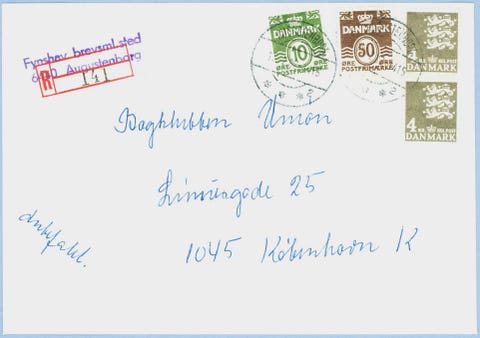 Fynshav brevsml.sted
Augustenborg
R
141
DANMARK
10
ØRE ØRE
POSTFRIMÆRKE
DANMARK
50
ØRE ØRE
POSTFRIMÆRKE
DANMARK
4 KR.
DANMARK
Bogklubben Union
Linnésgade 25
1045 København K
anbefalet.